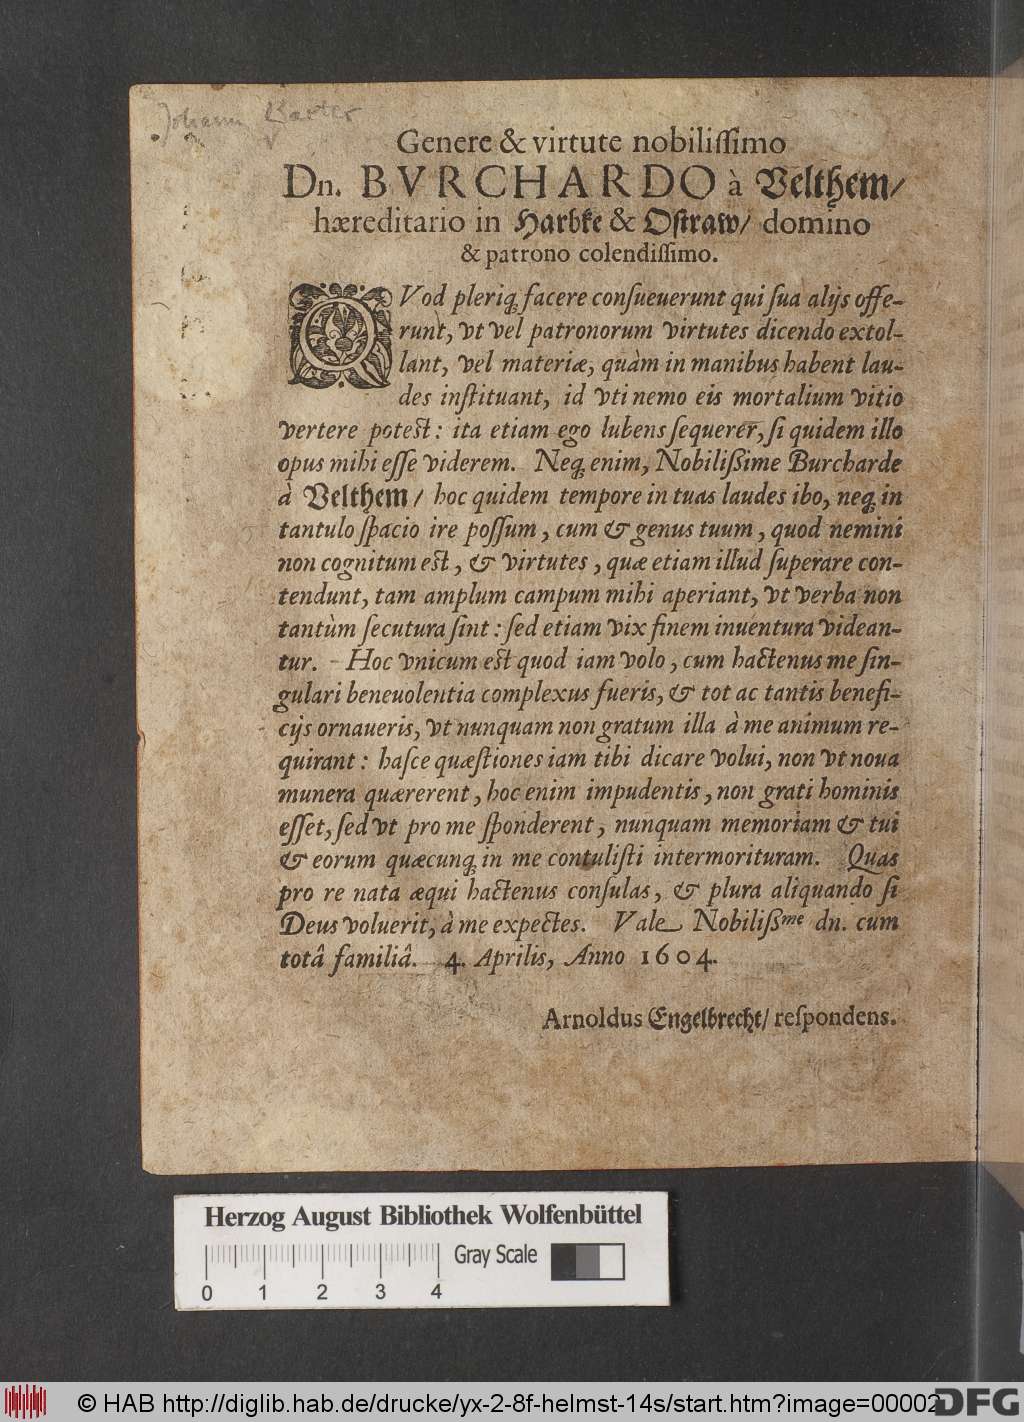 Genere & virtute nobilissimo
Dn. BVRCHARDO à Velthem/
hæreditario in Harbke & Ostraw/ domino
& patrono colendissimo.
QVod pleriq; facere consueuerunt qui sua alijs offe-
runt, vt vel patronorum virtutes dicendo extol-
lant, vel materiæ, quàm in manibus habent lau-
des instituant, id vti nemo eis mortalium vitio
vertere potest: ita etiam ego lubens sequerer, si quidem illo
opus mihi esse viderem. Neq; enim, Nobilißime Burcharde
à Velthem/ hoc quidem tempore in tuas laudes ibo, neq; in
tantulo spacio ire possum, cum & genus tuum, quod nemini
non cognitum est, & virtutes, quæ etiam illud superare con-
tendunt, tam amplum campum mihi aperiant, vt verba non
tantùm secutura sint: sed etiam vix finem inuentura videan-
tur. Hoc vnicum est quod iam volo, cum hactenus me sin-
gulari beneuolentia complexus fueris, & tot ac tantis benefi-
cijs ornaueris, vt nunquam non gratum illa à me animum re-
quirant: hasce quæstiones iam tibi dicare volui, non vt noua
munera quærerent, hoc enim impudentis, non grati hominis
esset, sed vt pro me sponderent, nunquam memoriam & tui
& eorum quæcunq; in me contulisti intermorituram. Quas
pro re nata æqui hactenus consulas, & plura aliquando si
Deus voluerit, à me expectes. Vale Nobiliß.me dn. cum
totâ familiâ. 4. Aprilis, Anno 1604.
Arnoldus Engelbrecht/ respondens.
Herzog August Bibliothek Wolfenbüttel
Gray Scale
0 1 2 3 4
© HAB http://diglib.hab.de/drucke/yx-2-8f-helmst-14s/start.htm?image=00002
DFG